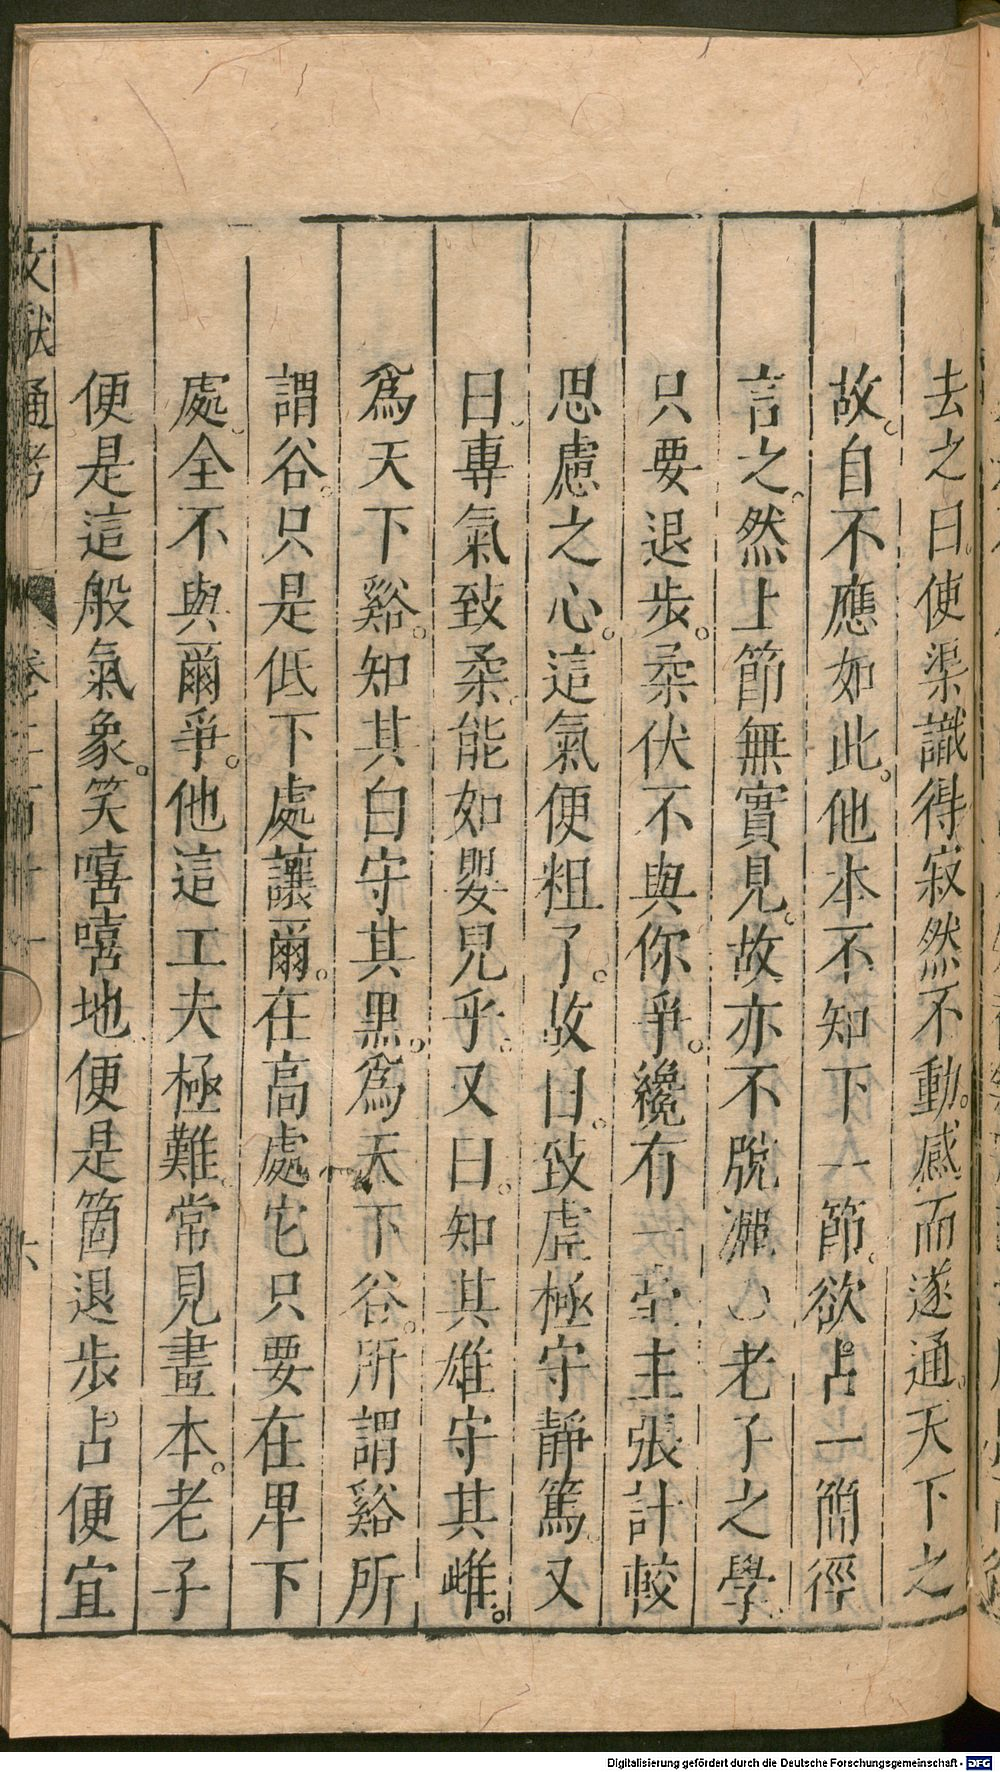 去之曰使渠識得寂然不動感而遂通天下之
故自不應如此他本不知下一節欲占一簡徑
言之然上節無實見故亦不脫灑 老子之學
只要退步柔伏不與你爭纔有一 主張計較
思慮之心這氣便粗了故曰致虛極守靜篤又
曰專氣致柔能如嬰兒乎又曰知其雄守其雌
為天下谿知其白守其黑為天下谷所謂谿所
謂谷只是低下處讓爾在高處它只要在卑下
處全不與爾爭他這工夫極難常見畫本老子
便是這般氣象笑嘻嘻地便是箇退步占便宜
文獻通考 卷二百十一 六
Digitalisierung gefördert durch die Deutsche Forschungsgemeinschaft - DFG